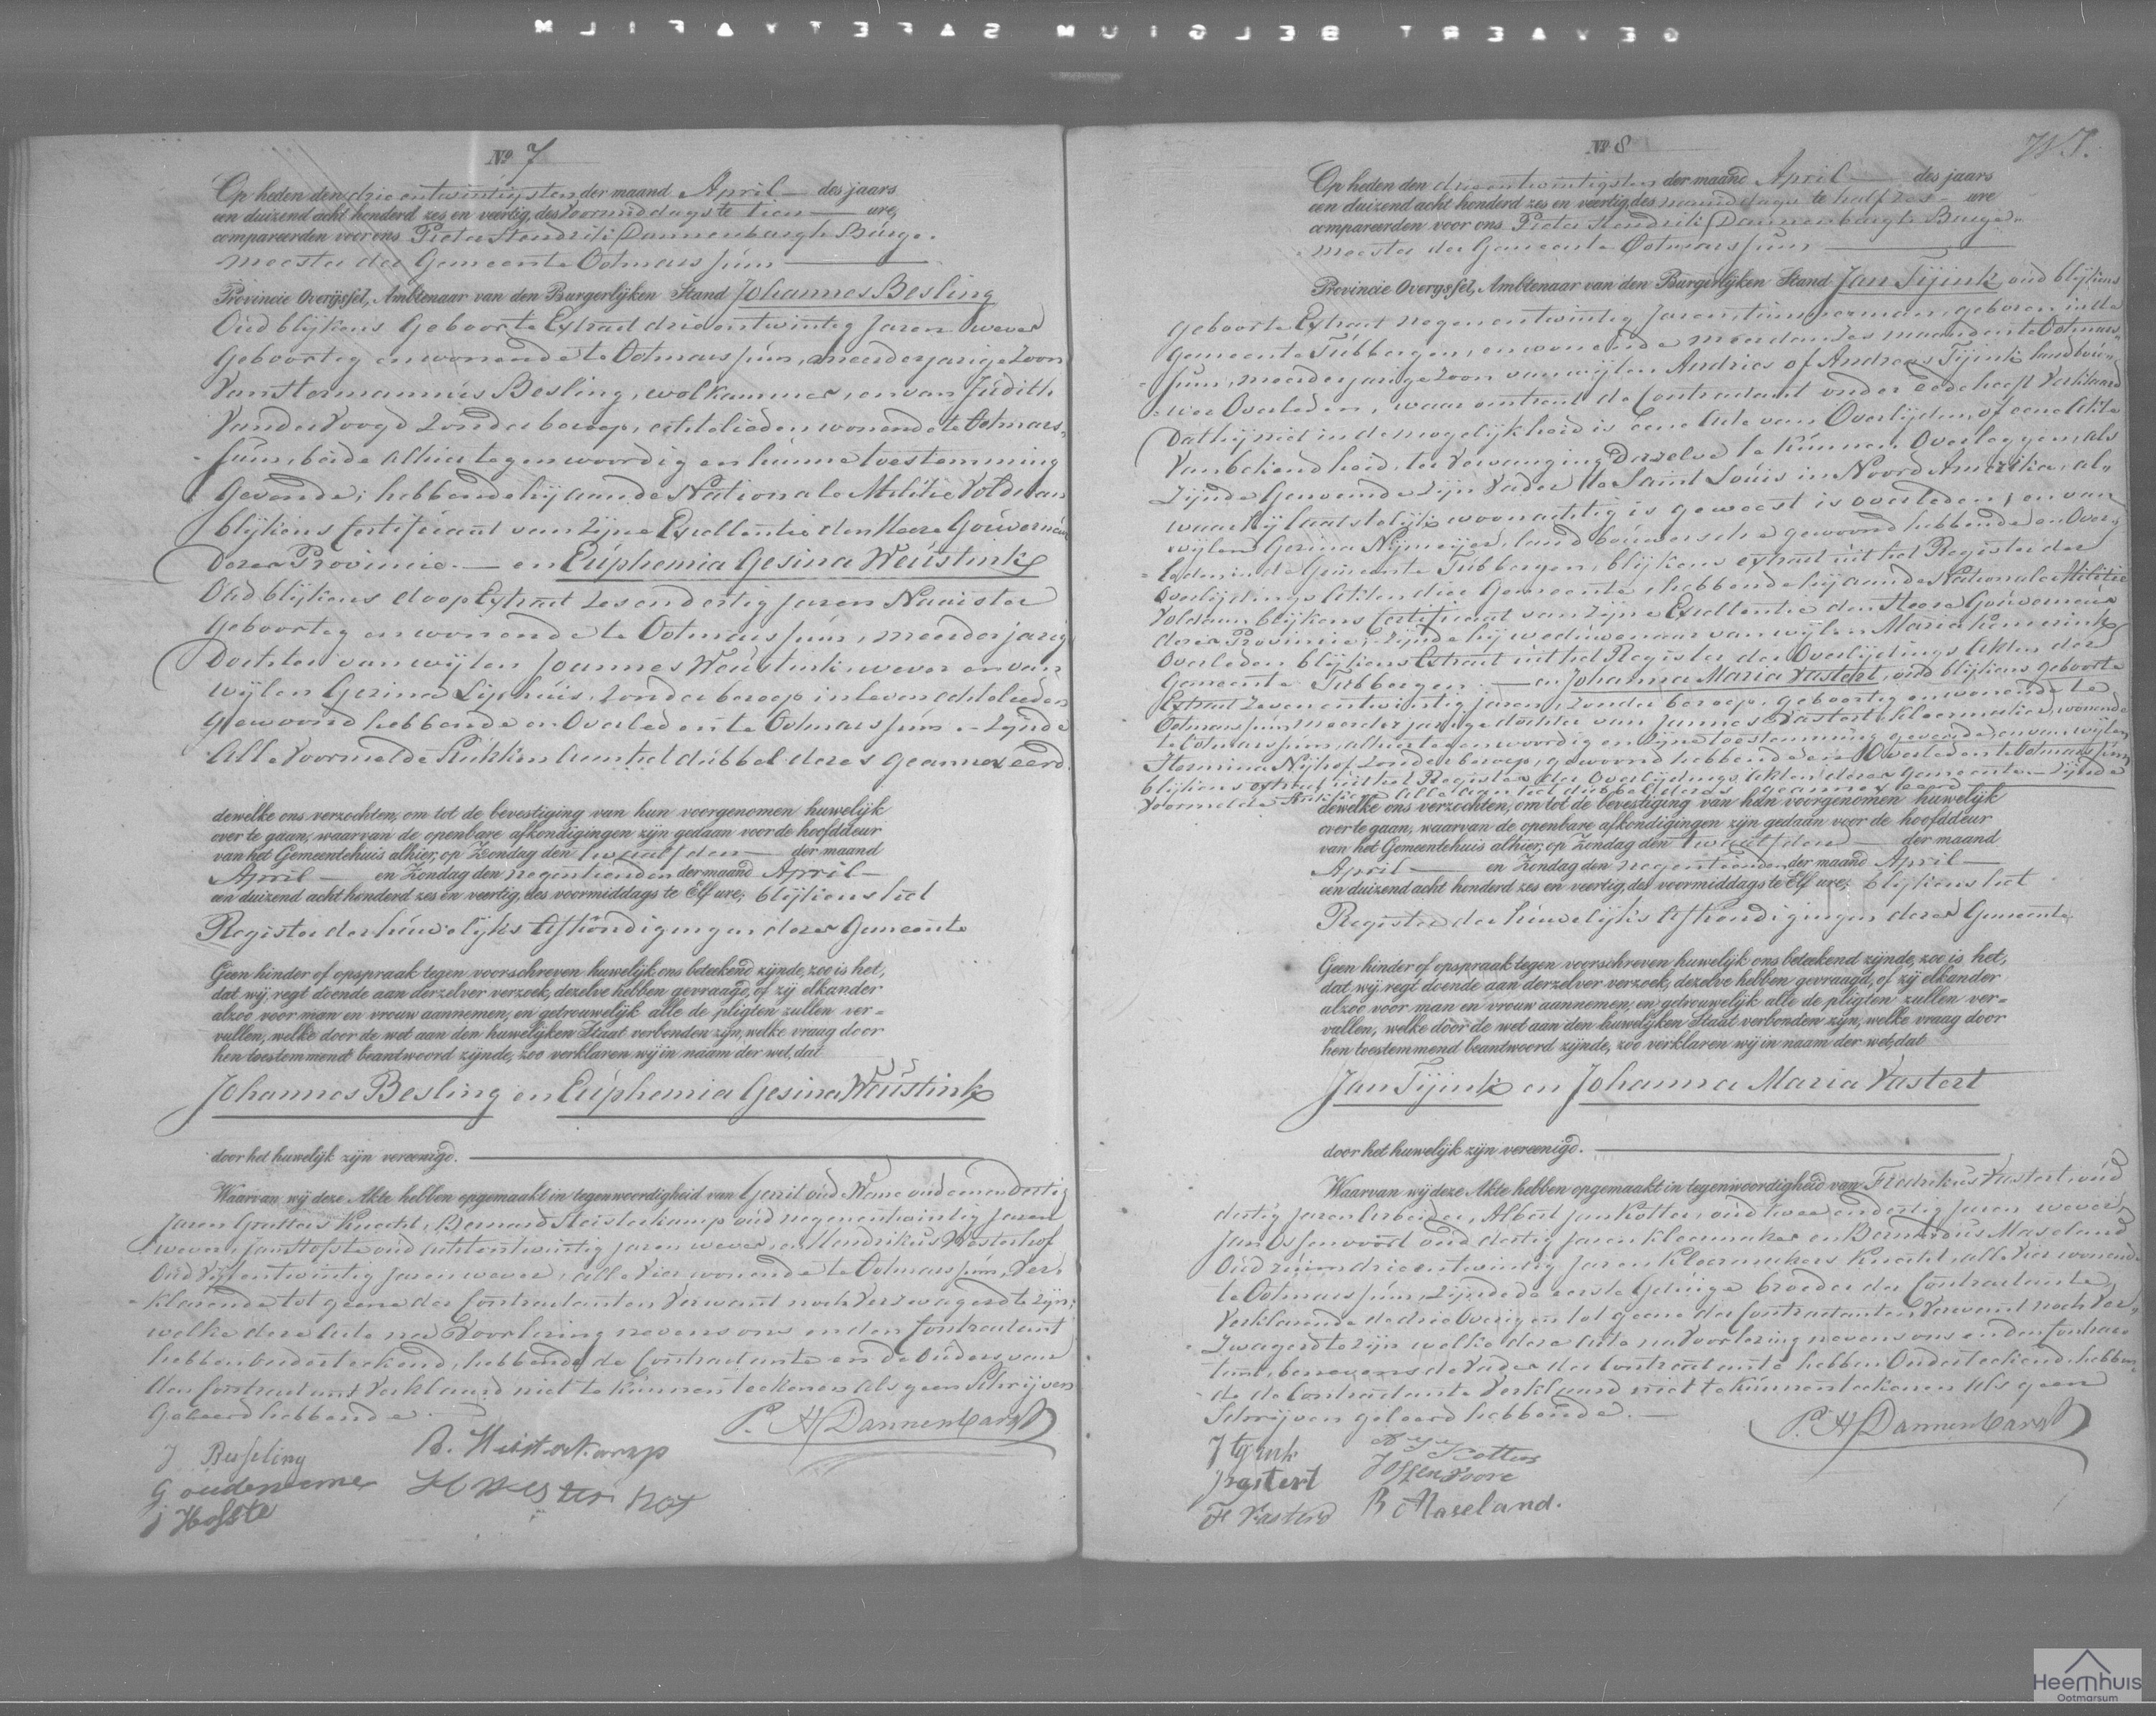 GEVAERT BELGIUM SAFETY FILM
Nº 7
Op heden den drie entwintigsten der maand April des jaars
een duizend acht honderd zes en veertig, des voormiddags te tien ure,
compareerden voor ons Pieter Hendrik Dannenbargh Burge-
meester der Gemeente Ootmarssum
Provincie Overijssel, Ambtenaar van den Burgerlijken Stand Johannes Besling
Oud blijkens Geboorte Extract drieentwintig Jaren wever
Geboortig en wonende te Ootmarssum, meerderjarige Zoon
Van Hermannus Besling, wolkammer, en van Judith
Van der Voogd Zonder beroep, echtelieden wonende te Ootmars-
sum, beide alhier tegenwoordig en hunne toestemming
Gevende; hebbende hij aan de Nationale Militie Voldaan
blijkens Certificaat van Zijne Excellentie den Heere Gouverneur
dezer Provincie. en Euphemia Gesina Weustink
Oud blijkens doop Extract Zesendertig Jaren Naaister
Geboortig en wonende te Ootmarssum, meerderjarige
Dochter van wijlen Joannes Weustink, wever en van
wijlen Gerina Lipshuis, Zonder beroep in leven echtelieden
Gewoond hebbende en Overleden te Ootmarssum. Zijnde
Alle Voormelde Stukken aan het dubbel dezes geannexeerd.
dewelke ons verzochten, om tot de bevestiging van hun voorgenomen huwelijk
over te gaan, waarvan de openbare afkondigingen zijn gedaan voor de hoofddeur
van het Gemeentehuis alhier, op Zondag den twaalfden der maand
April en Zondag den negentienden der maand April
een duizend acht honderd zes en veertig, des voormiddags te Elf ure; blijkens het
Register der huwelijks Afkondigingen dezer Gemeente
Geen hinder of opspraak tegen voorschreven huwelijk ons betekend zijnde, zoo is het,
dat wij, regt doende aan derzelver verzoek, dezelve hebben gevraagd, of zij elkander
alzoo voor man en vrouw aannemen, en getrouwelijk alle de pligten zullen ver=
vullen, welke door de wet aan den huwelijken Staat verbonden zijn, welke vraag door
hen toestemmend beantwoord zijnde, zoo verklaren wij in naam der wet, dat
Johannes Besling en Euphemia Gesina Weustink
door het huwelijk zijn vereenigd.
Waarvan wij deze Akte hebben opgemaakt in tegenwoordigheid van Gerrit oude Weme oud eenendertig
Jaren Grutters Knecht, Bernard Heisterkamp oud negenentwintig Jaren
wever, Jan Hofste oud achtentwintig Jaren wever, en Hendrikus Westerhof
Oud Vijfentwintig Jaren wever, alle Vier wonende te Ootmarssum, Ver-
klarende tot geene der Contractanten Verwant noch Verzwagerd te zijn;
welke deze Acte na Voorlezing nevens ons en den Contractant
hebben Onderteekend, hebbende de Contractante en de Ouders van
den Contractant Verklaard niet te kunnen teekenen als geen Schrijven
Geleerd hebbende.
P. H. Dannenbargh
J Besseling B. Heisterkamp
G oudeweme H Westerhof
J Hofste
Nº 8
Op heden den drieentwintigsten der maand April des jaars
een duizend acht honderd zes en veertig, des namiddags te half zes ure
compareerden voor ons Pieter Hendrik Dannenbargh Burge-
meester der Gemeente Ootmarssum
Provincie Overijssel, Ambtenaar van den Burgerlijken Stand Jan Tijink, oud blijkens
geboorte Extract negenentwintig Jaren, timmerman, geboren in de
Gemeente Tubbergen, en wonende meer dan zes maanden te Ootmars-
sum, meerderjarige Zoon van wijlen Andries of Andreas Tijink landbou-
wer Overleden, waaromtrent de Contractant onder Eede heeft Verklaard
Dat hij niet in de mogelijkheid is eene Acte van Overlijden, of eene Akte
Van bekendheid, ter Vervanging Derzelve te kunnen Overleggen, als
Zijnde Genoemde Zijn Vader te Saint Louis in Noord Amerika, al-
waar hij laatstelijk woonachtig is geweest is overleden; en van
wijlen Gerina Nijmeijer, landbouwersche gewoond hebbende en Over-
leden in de Gemeente Tubbergen, blijkens extract uit het Register der
Overlijdings Akten dier Gemeente, hebbende hij aan de Nationale Militie
Voldaan blijkens Certificaat van Zijne Excellentie den Heere Gouverneur
dezer Provincie; Zijnde hij weduwenaar van wijlen Maria Kemerink
Overleden blijkens Extract uit het Register der Overlijdings Akten der
Gemeente Tubbergen. en Johanna Maria Vastert, oud blijkens geboorte
Extract Zevenentwintig Jaren, Zonder beroep, geboortig en wonende te
Ootmarssum meerderjarige dochter van Jannes Vastert kleermaker, wonende
te Ootmarssum, alhier tegenwoordig en Zijne toestemming gevende, en van wijlen
Hermina Nijhof Zonder beroep, gewoond hebbende en Overleden te Ootmarssum
blijkens extract uit het Register der Overlijdings Akten dezer Gemeente. Zijnde
Voormelde Stukken alle aan het dubbel dezes geannexeerd
dewelke ons verzochten, om tot de bevestiging van hun voorgenomen huwelijk
over te gaan, waarvan de openbare afkondigingen zijn gedaan voor de hoofddeur
van het Gemeentehuis alhier, op Zondag den twaalfden der maand
April en Zondag den negentienden der maand April
een duizend acht honderd zes en veertig, des voormiddags te Elf ure; blijkens het
Register der huwelijks Afkondigingen dezer Gemeente.
Geen hinder of opspraak tegen voorschreven huwelijk ons betekend zijnde, zoo is het,
dat wij, regt doende aan derzelver verzoek, dezelve hebben gevraagd, of zij elkander
alzoo voor man en vrouw aannemen, en getrouwelijk alle de pligten zullen ver=
vullen, welke door de wet aan den huwelijken Staat verbonden zijn, welke vraag door
hen toestemmend beantwoord zijnde, zoo verklaren wij in naam der wet, dat
Jan Tijink en Johanna Maria Vastert
door het huwelijk zijn vereenigd.
Waarvan wij deze Akte hebben opgemaakt in tegenwoordigheid van Fredrikus Vastert, oud
dertig Jaren Arbeider, Albert Jan Kotter, oud twee endertig Jaren wever,
Jan Ossenvoort oud dertig Jaren kleermaker en Bernardus Maseland
Oud ruim drieentwintig Jaren Kleermakers Knecht, alle Vier wonende
te Ootmarssum, Zijnde de eerste Getuige broeder der Contractante,
Verklarende de drie Overigen tot geene der Contractanten Verwant noch Ver-
Zwagerd te zijn welke deze Acte na Voorlezing nevens ons en den Contrac-
tant, benevens de Vader der Contractante hebben Onderteekend, hebben-
de de Contractante Verklaard niet te kunnen teekenen als geen
Schrijven geleerd hebbende.
P. H. Dannenbargh
Kotters
Vastert
F Vasterd B Maseland.
Heemhuis
Ootmarsum